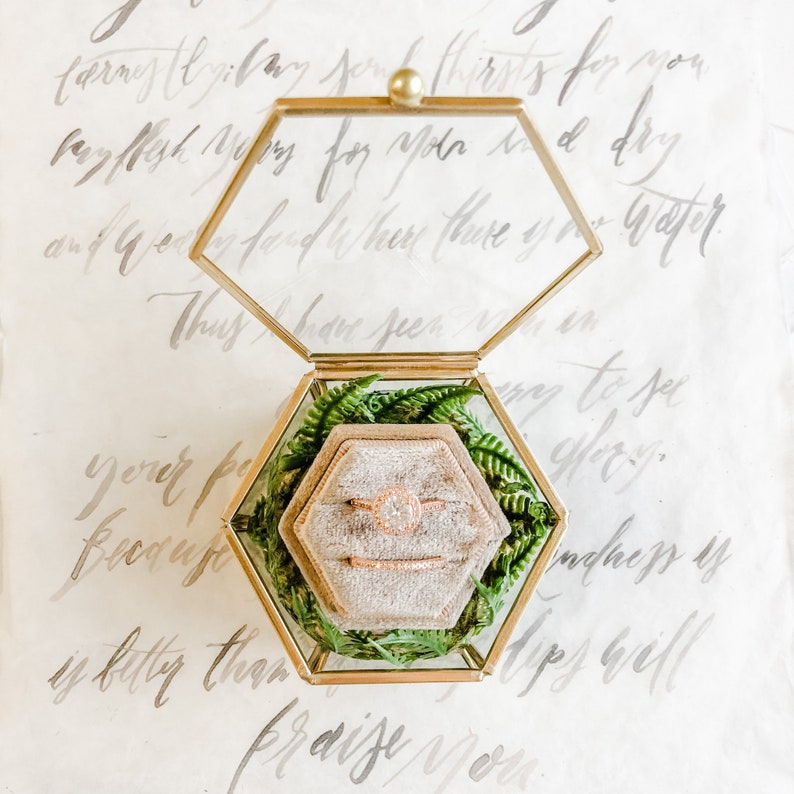 earnestly; my soul thirsts for you
my flesh yearns for you in a dry
and weary land where there is no water.
Thus I have seen you in
to see
your po glory.
Because kindness is
is better than lips will
praise you